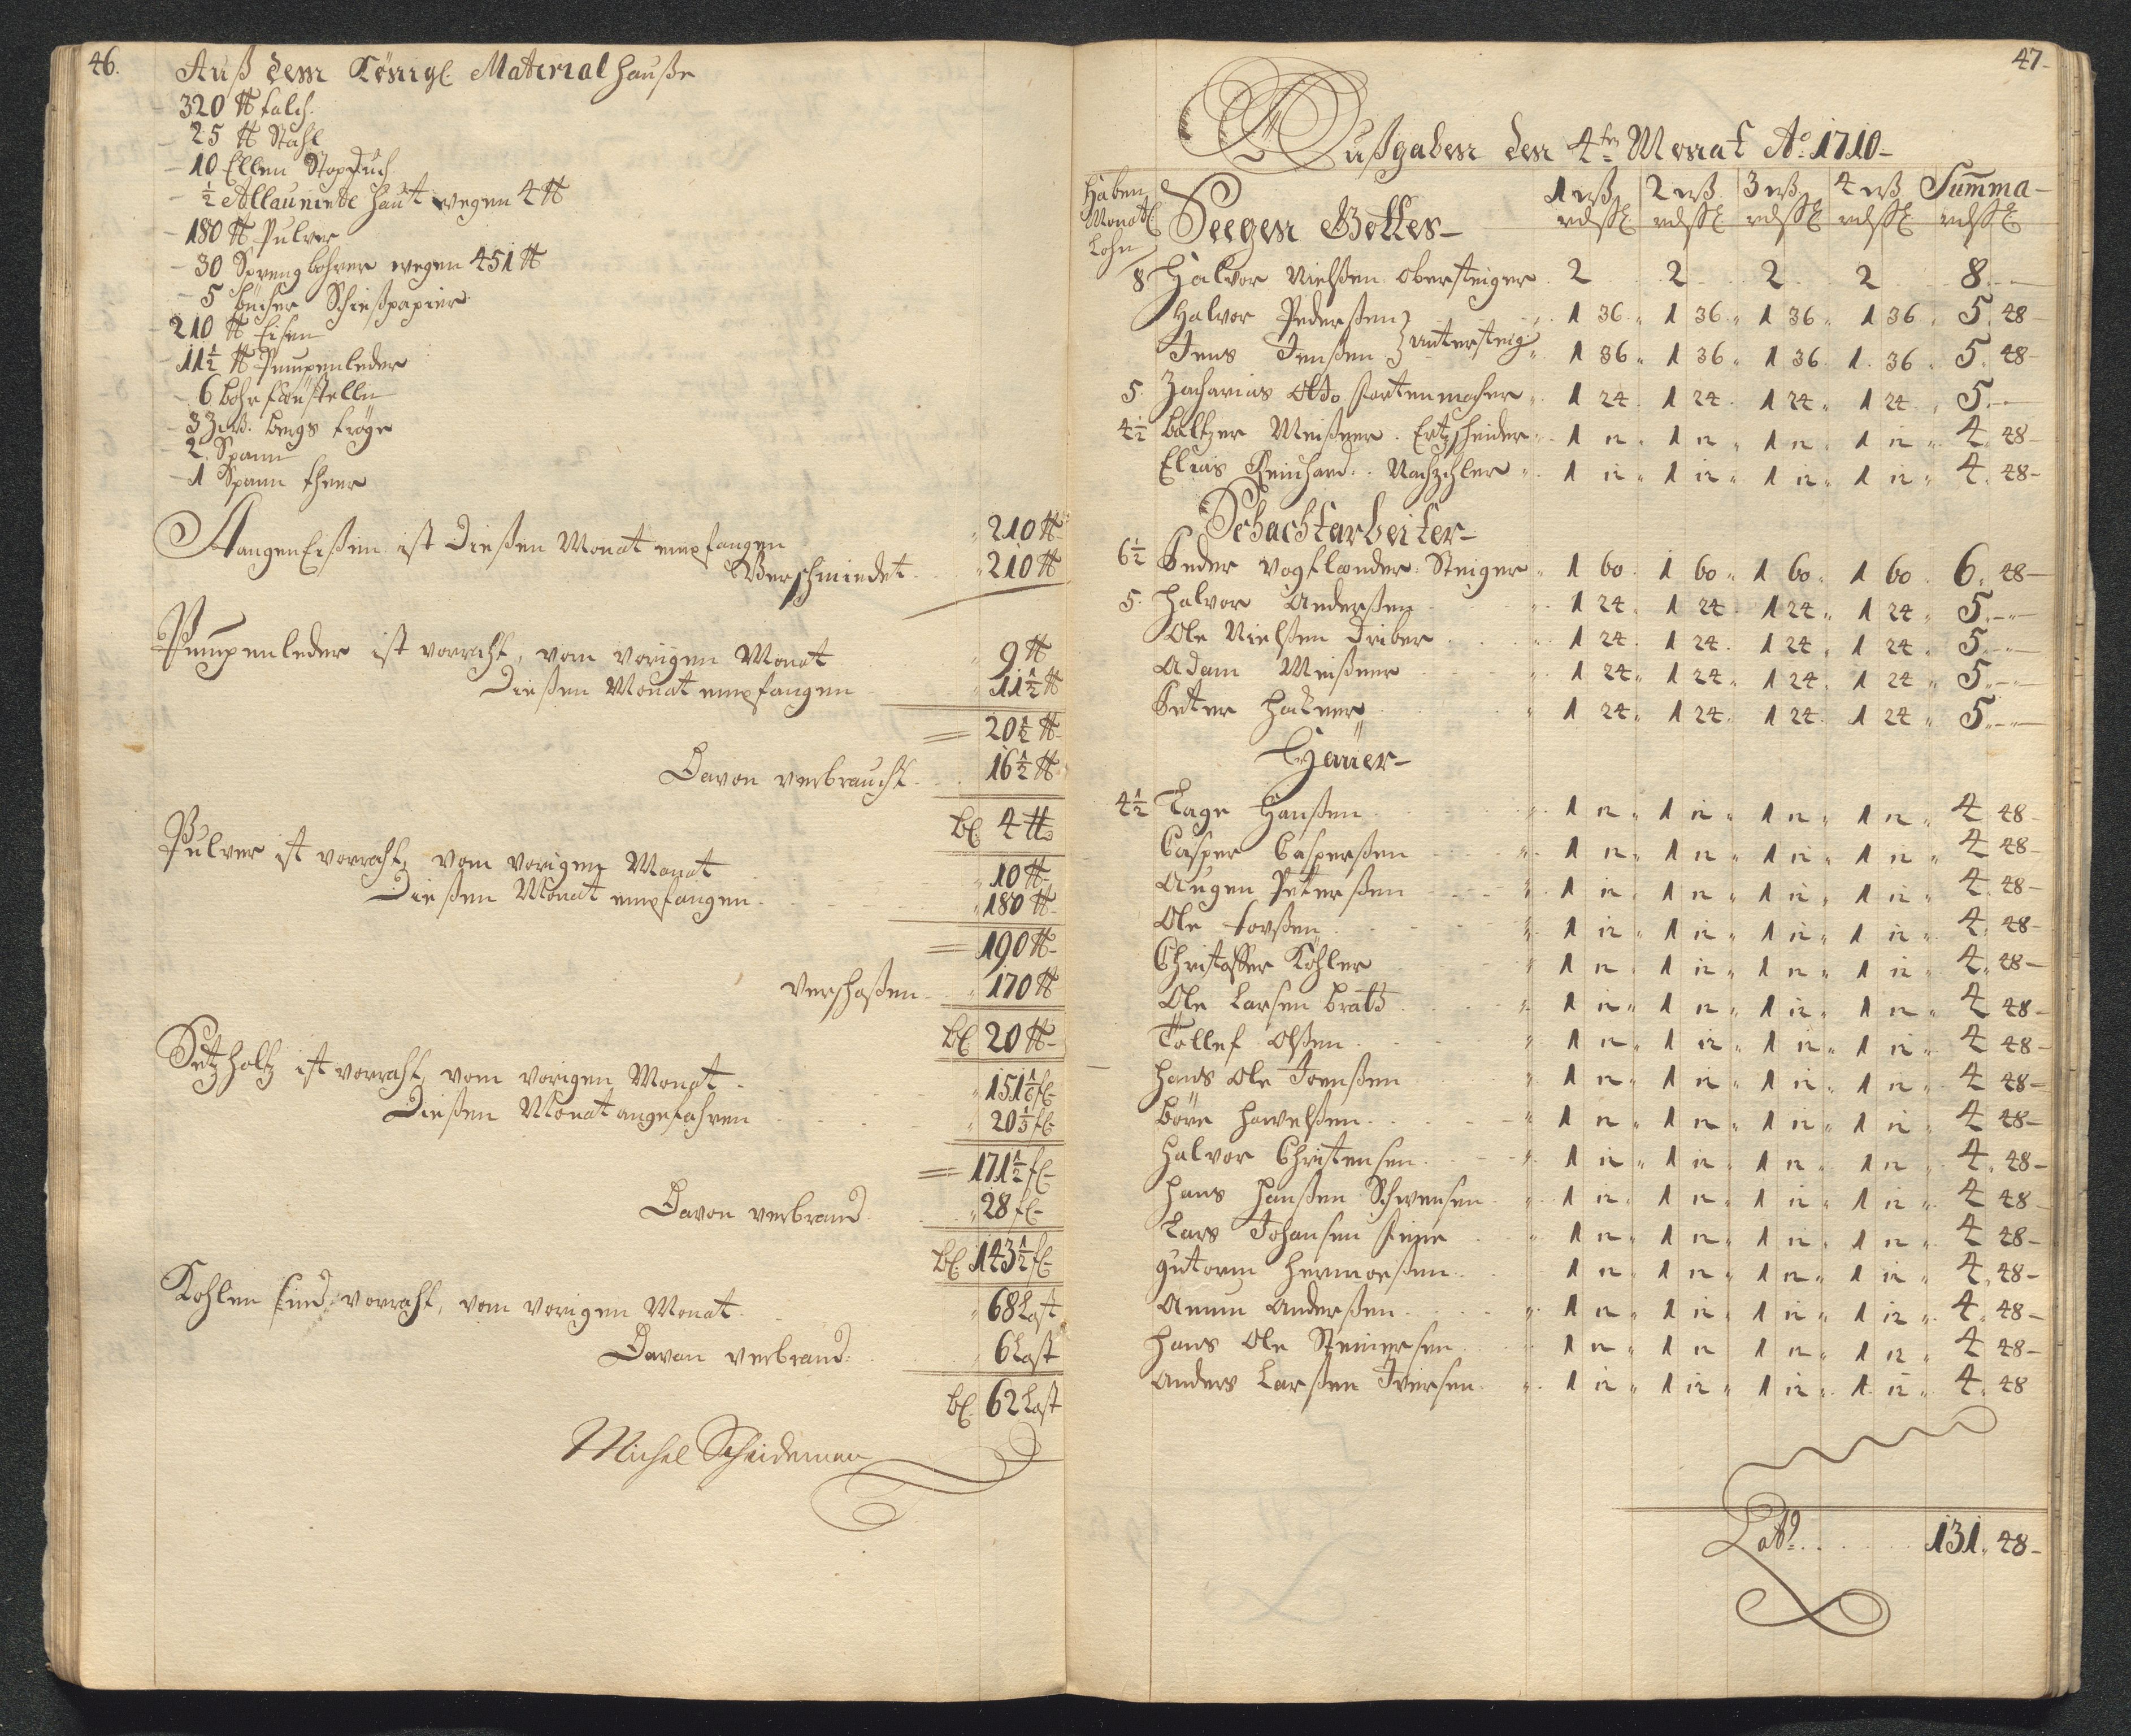 46.
Auß dem Königl. Material Hauße
320 ℔ talch.
- 25 ℔ Stahl
- 10 Ellen Stoptuch
- ½ Allaunirte Haut wegen 4 ℔
- 180 ℔ Pulver
- 30 Sprengbohrer wegen 451 ℔
- 5 bücher Schießpapier
- 210 ℔ Eisen
- 11½ ℔ Pumpenleder
- 6 bohr
- 3 bergs tröge
- 2 Spann
- 1 Spann theer
StangenEißen ist dießen Monat empfangen " 210 ℔
Verschmiedet " 210 ℔
Pumpenleder ist vorraht, vom vorigen Monat " 9 ℔
Dießen Monat empfangen " 11½ ℔
= 20½ ℔
Davon verbraucht 16½ ℔
bl. 4 ℔
Pulver ist vorraht, vom vorigen Monat " 10 ℔
Dießen Monat empfangen " 180 ℔
= 190 ℔
verschoßen " 170 ℔
bl. 20 ℔
Setzholtz ist vorraht, vom vorigen Monat " 151⅙ fl
Dießen Monat angefahren " 20⅓ fl
= 171½ fl
Davon verbrand " 28 fl
bl. 143½ fl
Kohlen sind vorraht, vom vorigen Monat " 68 Last
Davon verbrand " 6 Last
bl. 62 Last
Michel Scheideman
47
Außgaben den 4ten Monat Ao. 1710
Haben Monatl. Lohn
Seegen Gottes
1 wß 2 wß 3 wß 4 wß Summa
rd ßl rd ßl rd ßl rd ßl rd ßl
8 Halvor Nielßen obersteiger 2 2 2 2 8
Halvor Pederßen 1 36 1 36 1 36 1 36 5 48
Jens Jenßen untersteig 1 36 1 36 1 36 1 36 5 48
5. Zacharias Otto 1 24 1 24 1 24 1 24 5
4½ Baltzer Meißner Ertzscheider 1 12 1 12 1 12 1 12 4 48
Elias Reinhard Nachzehler 1 12 1 12 1 12 1 12 4 48
Schachtarbeiter
6½ Peder Vogtlænder Steiger 1 60 1 60 1 60 1 60 6 48
5. Halvor Anderßen 1 24 1 24 1 24 1 24 5
Ole Nielßen Driber 1 24 1 24 1 24 1 24 5
Adam Meißner 1 24 1 24 1 24 1 24 5
Peter 1 24 1 24 1 24 1 24 5
Hauer
4½ Tage Hanßen 1 12 1 12 1 12 1 12 4 48
Casper Casperßen 1 12 1 12 1 12 1 12 4 48
Augen Peterßen 1 12 1 12 1 12 1 12 4 48
Ole Torßen 1 12 1 12 1 12 1 12 4 48
Christoffer Köhler 1 12 1 12 1 12 1 12 4 48
Ole Larsen Bratz 1 12 1 12 1 12 1 12 4 48
Tollef Olßen 1 12 1 12 1 12 1 12 4 48
Hans Ole Joenßen 1 12 1 12 1 12 1 12 4 48
Böre 1 12 1 12 1 12 1 12 4 48
Halvor Christensen 1 12 1 12 1 12 1 12 4 48
Hans Hanßen Schwensen 1 12 1 12 1 12 1 12 4 48
Lars Johansen 1 12 1 12 1 12 1 12 4 48
Gutorm Hermoeßen 1 12 1 12 1 12 1 12 4 48
Anderßen 1 12 1 12 1 12 1 12 4 48
Hans Ole Steinersen 1 12 1 12 1 12 1 12 4 48
Anders Larßen Iversen 1 12 1 12 1 12 1 12 4 48
Lat. 131 48